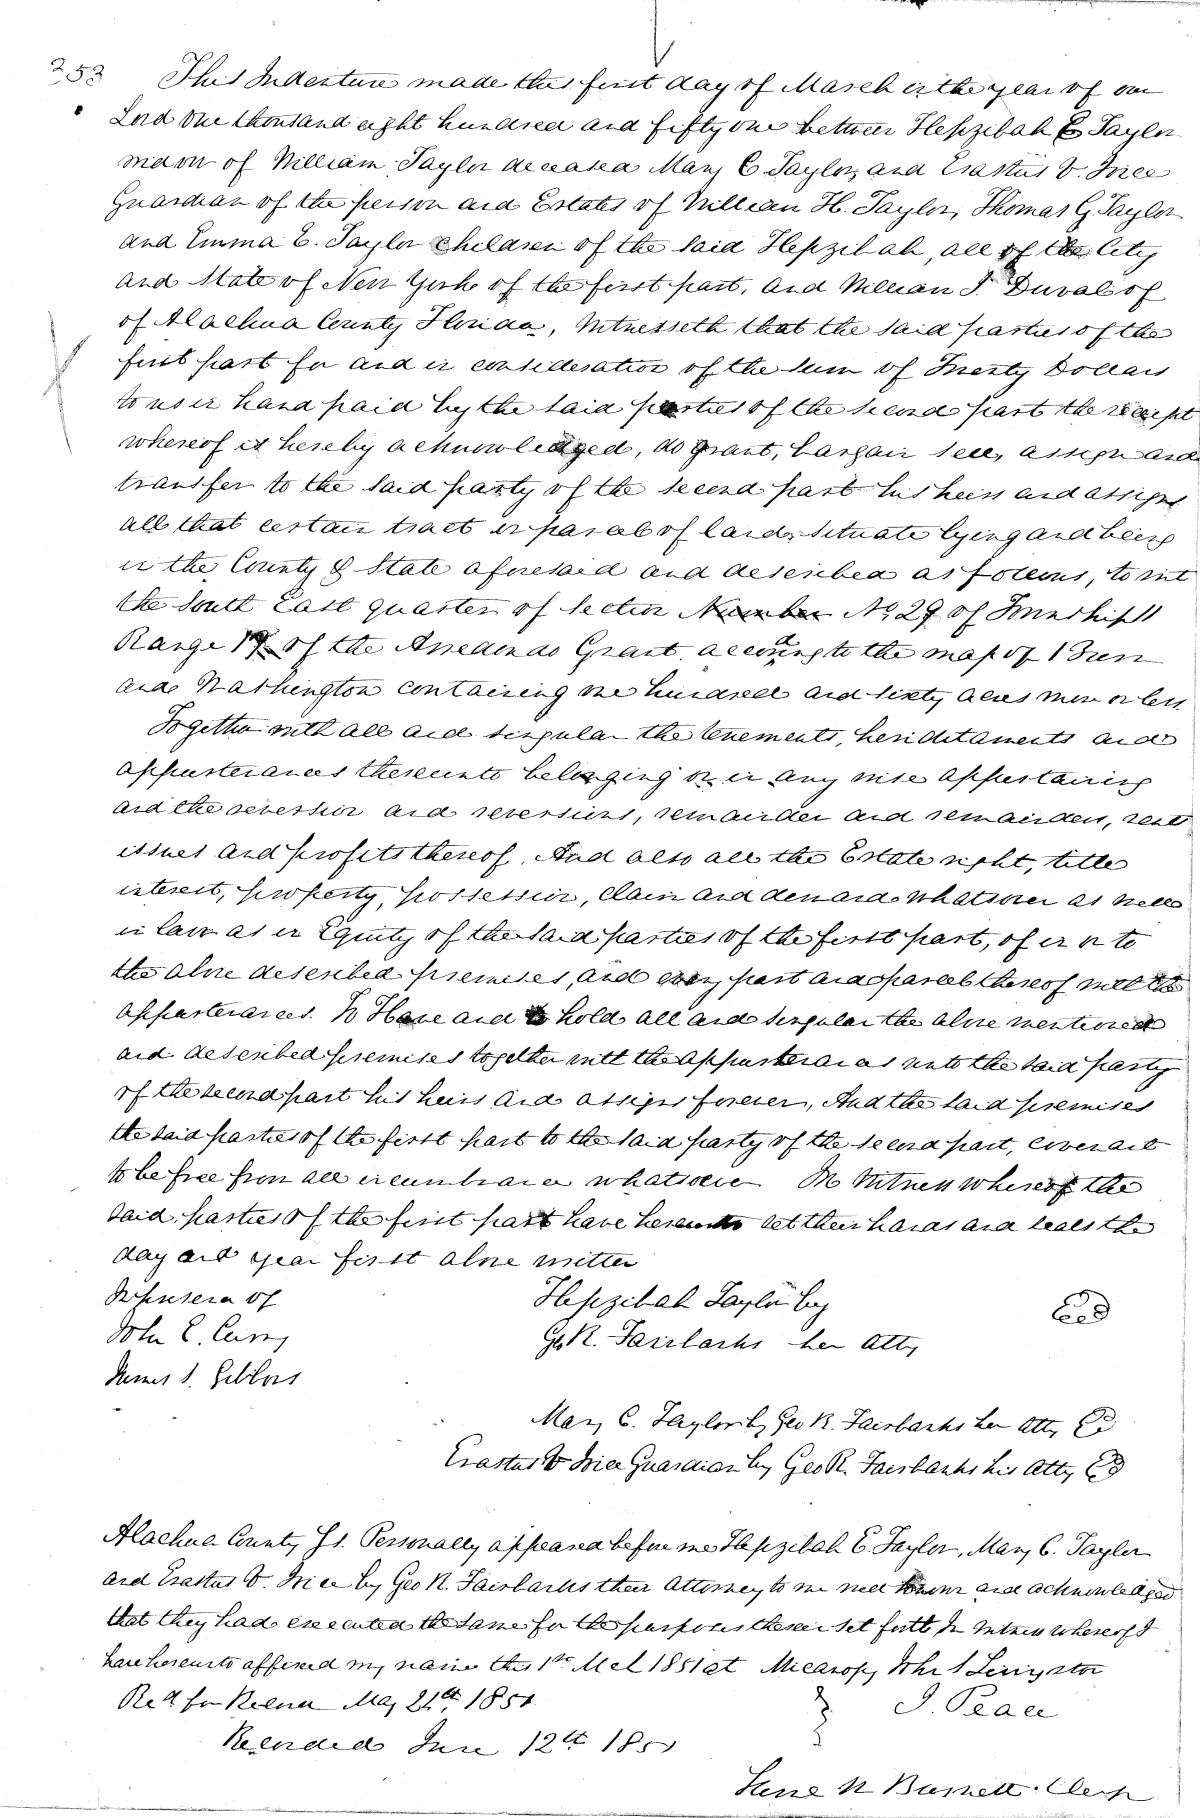 253 This Indenture made this first day of March in the year of our
Lord One thousand eight hundred and fifty one between Hepzibah E Taylor
widow of William Taylor deceased Mary C Taylor, and Erastus V.
Guardian of the person and Estates of William H. Taylor, Thomas G. Taylor
and Emma E. Taylor children of the said Hepzibah, all of the City
and State of New York of the first part, and William J. Duval of
of Alachua County Florida, Witnesseth that the said parties of the
first part for and in consideration of the sum of Twenty Dollars
to us in hand paid by the said parties of the second part the receipt
whereof is hereby acknowledged, do grant, bargain sell, assign and
transfer to the said party of the second part his heirs and assigns
all that certain tract or parcel of land, situate lying and being
in the County & State aforesaid and described as follows, to wit
the South East quarter of Section Number No. 29 of Township 11
Range 19 of the Arredondo Grant according to the map of
and Washington containing one hundred and sixty acres more or less
Together with all and singular the tenements, heriditaments and
appurtenances thereunto belonging or in any wise appertaining
and the reversion and reversions, remainder and remainders, rents
issues and profits thereof. And also all the Estate right, title
interest, property, possession, claim and demand whatsoever as well
in law as in Equity of the said parties of the first part, of in or to
the above described premises, and every part and parcel thereof with the
appurtenances. To Have and to hold all and singular the above mentioned
and described premises together with the appurtenances unto the said party
of the second part his heirs and assigns forever, And the said premises
the said parties of the first part to the said party of the second part, covenant
to be free from all incumbrance whatsoever In Witness whereof the
said parties of the first part have hereunto set their hands and seals the
day and year first above written
In presence of Hepzibah Taylor by
John C. Geo R. Fairbanks her Atty
James S. Gibbons
Mary C. Taylor by Geo R. Fairbanks her Atty
Erastus V Guardian by Geo R. Fairbanks his Atty
Alachua County Ss. Personally appeared before me Hepzibah E. Taylor, Mary C. Taylor
and Erastus V. by Geo R. Fairbanks their Attorney to me well known and acknowledged
that they had executed the same for the purposes therein set forth In Witness whereof I
have hereunto affixed my name this 1st Mch 1851 at Micanopy John Livingston
Recd for Record May 21st 1851 J. Peace
Recorded June 12th 1851
Burnett Clerk